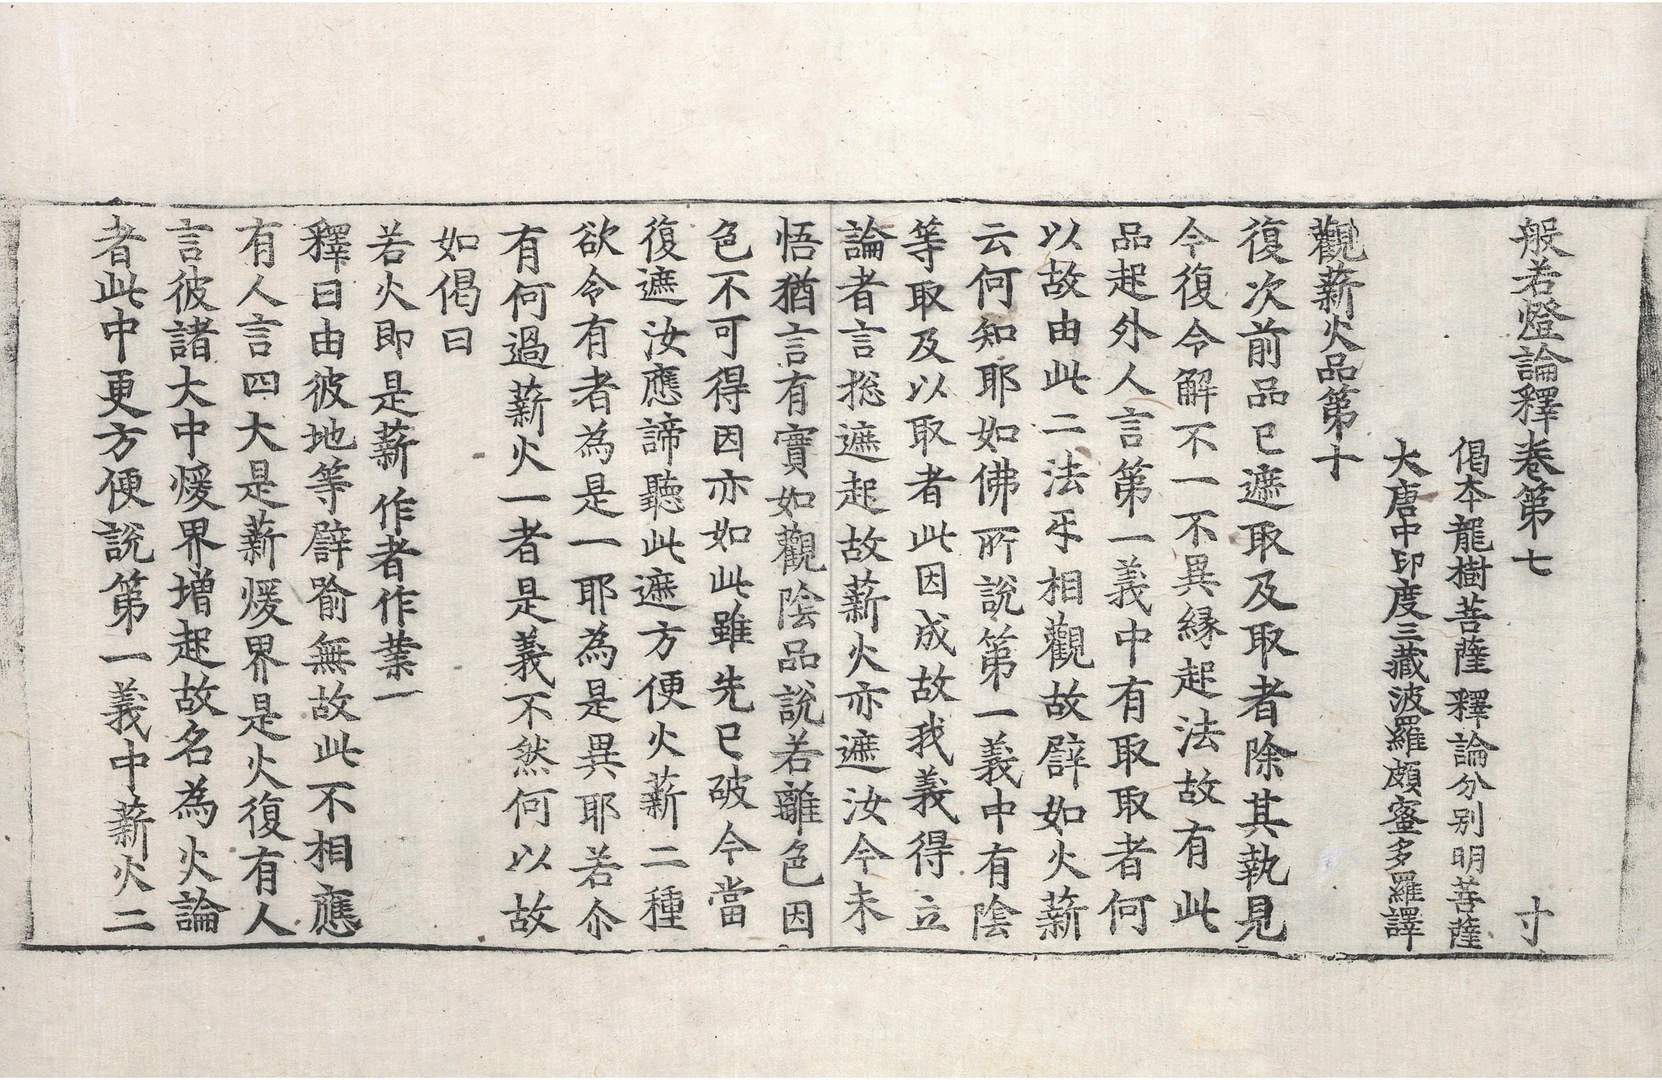 般若燈論釋卷第七 寸
偈本龍樹菩薩 釋論分別明菩薩
大唐中印度三藏波羅頗蜜多羅譯
觀薪火品第十
復次前品已遮取及取者除其執見
今復令解不一不異縁起法故有此
品起外人言第一義中有取取者何
以故由此二法互相觀故譬如火薪
云何知耶如佛所說第一義中有陰
等取及以取者此因成故我義得立
論者言捴遮起故薪火亦遮汝今未
悟猶言有實如觀陰品說若離色因
色不可得因亦如此雖先已破今當
復遮汝應諦聽此遮方便火薪二種
欲令有者為是一耶為是異耶若尒
有何過薪火一者是義不然何以故
如偈曰
若火即是薪 作者作業一
釋曰由彼地等譬喻無故此不相應
有人言四大是薪煖界是火復有人
言彼諸大中煖界增起故名為火論
者此中更方便說第一義中薪火二